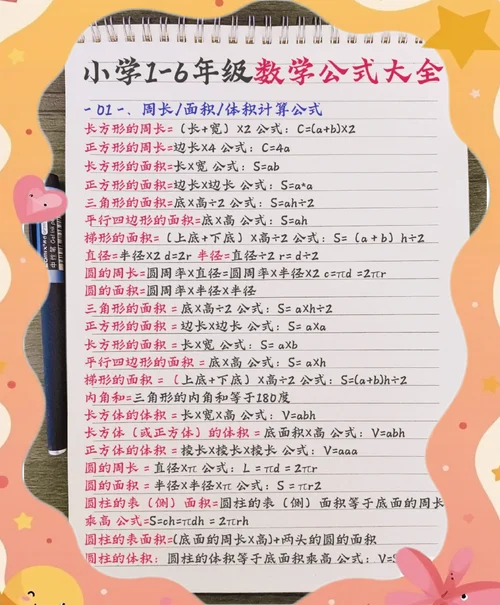 小学1-6年级数学公式大全
-01-、周长/面积/体积计算公式
长方形的周长=(长+宽)X2 公式:C=(a+b)X2
正方形的周长=边长X4 公式:C=4a
长方形的面积=长X宽 公式:S=ab
正方形的面积=边长X边长 公式:S=a*a
三角形的面积=底X高÷2 公式:S=ah÷2
平行四边形的面积=底X高 公式:S=ah
梯形的面积=(上底+下底)X高÷2 公式:S=(a+b)h÷2
直径=半径X2 d=2r 半径=直径÷2 r=d÷2
圆的周长=圆周率X直径=圆周率X半径X2 c=πd =2πr
圆的面积=圆周率X半径X半径
三角形的面积 =底X高÷2 公式:S= aXh÷2
正方形的面积 =边长X边长 公式:S= aXa
长方形的面积 =长X宽 公式:S= aXb
平行四边形的面积 =底X高 公式:S= aXh
梯形的面积 =(上底+下底)X高÷2 公式:S=(a+b)h÷2
内角和=三角形的内角和等于180度
长方体的体积 =长X宽X高 公式:V=abh
长方体(或正方体)的体积 =底面积X高 公式:V=abh
正方体的体积 =棱长X棱长X棱长 公式:V=aaa
圆的周长 =直径Xπ 公式:L =πd =2πr
圆的面积 =半径X半径Xπ 公式:S =πr2
圆柱的表(侧)面积=圆柱的表(侧)面积等于底面的周长
乘高 公式=S=ch=πdh =2πrh
圆柱的表面积=(底面的周长X高)+两头的圆的面积
圆柱的体积:圆柱的体积等于底面积乘高 公式:V=